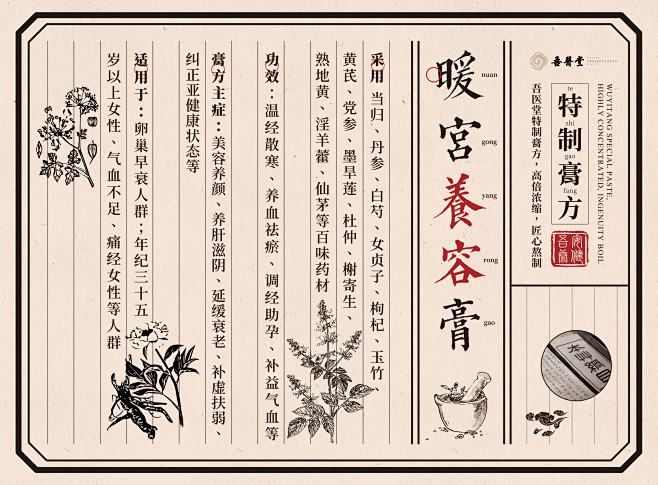 吾醫堂
WUYITANG SPECIAL PASTE,
HIGHLY CONCENTRATED, INGENUITY BOIL
te
特
zhi
制
gao
膏
fang
方
吾医堂特制膏方，高倍浓缩，匠心熬制
暖
nuan
宮
gong
養
yang
容
rong
膏
gao
采用 当归、丹参、白芍、女贞子、枸杞、玉竹、
黄芪、党参、墨旱莲、杜仲、槲寄生、
熟地黄、淫羊藿、仙茅等百味药材
功效：温经散寒、养血祛瘀、调经助孕、补益气血等
膏方主症：美容养颜、养肝滋阴、延缓衰老、补虚扶弱、
纠正亚健康状态等
适用于：卵巢早衰人群；年纪三十五
岁以上女性、气血不足、痛经女性等人群